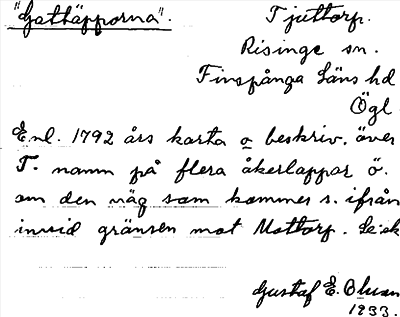 "Gathäpporna".
Tjuttorp.
Risinge sn.
Finspånga Läns hd
Ögl
Enl. 1792 års karta o beskriv. över
T. namn på flera åkerlappar ö.
om den väg som kommer s. ifrån
invid gränsen mot Mottorp.
Gustaf E. Ohman
1933.